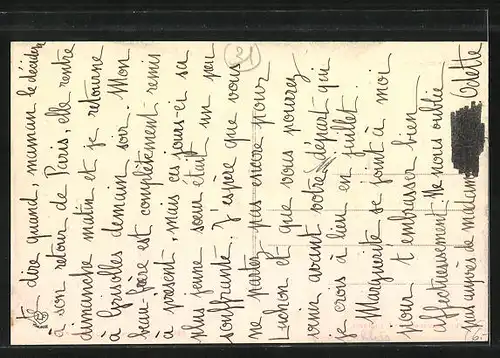 et dire quand, maman le décidera
à son retour de Paris, elle rentre
dimanche matin et je retourne
à Grisolles demain soir. Mon
beau-père est complètement remis
à présent, mais ces jours-ci sa
plus jeune sœur était un peu
souffrante. J'espère que vous
ne partez pas encore pour
Luchon et que vous pourrez
venir avant votre départ qui
je crois à lieu en juillet.
Marguerite se joint à moi
pour t'embrasser bien
affectueusement. Ne nous oublie
pas auprès de madame
Odette